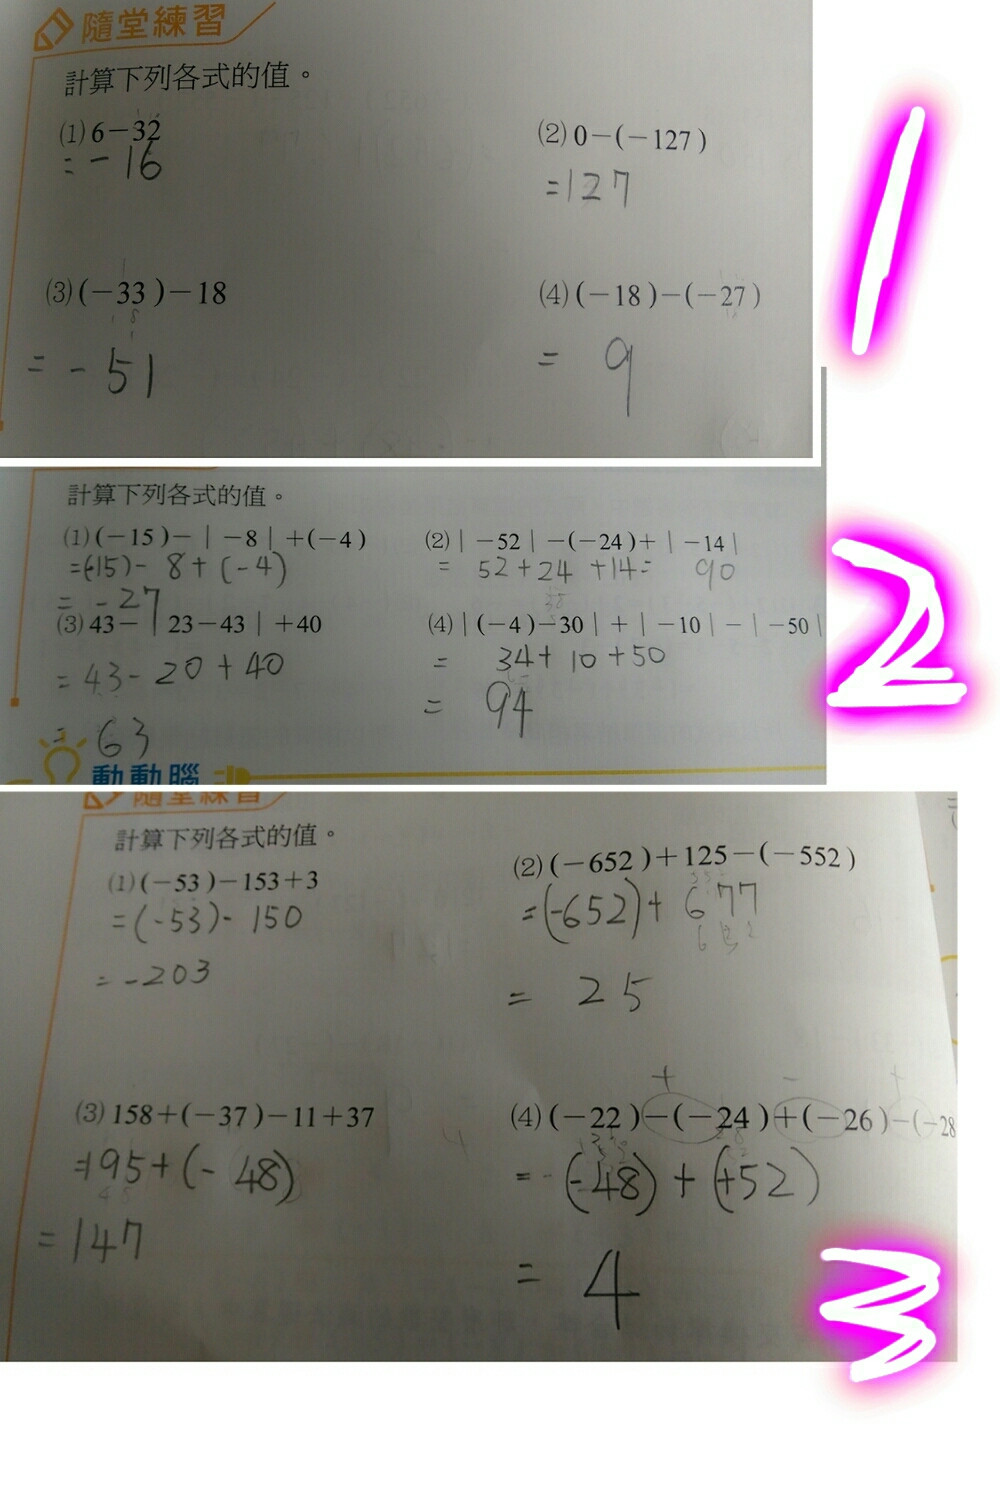 隨堂練習
計算下列各式的值。
(1) 6-32
= -16
(2) 0-(-127)
=127
(3) (-33)-18
= -51
(4) (-18)-(-27)
= 9
1
計算下列各式的值。
(1) (-15)-|-8|+(-4)
=(-15)- 8+(-4)
= -27
(2) |-52|-(-24)+|-14|
= 52+24 +14= 90
(3) 43-|23-43|+40
= 43-20+40
= 63
(4) |(-4)-30|+|-10|-|-50|
= 34+10+50
= 94
2
動動腦
隨堂練習
計算下列各式的值。
(1) (-53)-153+3
=(-53)-150
= -203
(2) (-652)+125-(-552)
=(-652)+677
= 25
(3) 158+(-37)-11+37
=195+(-48)
=147
(4) (-22)-(-24)+(-26)-(-28
= (-48)+(+52)
= 4
3